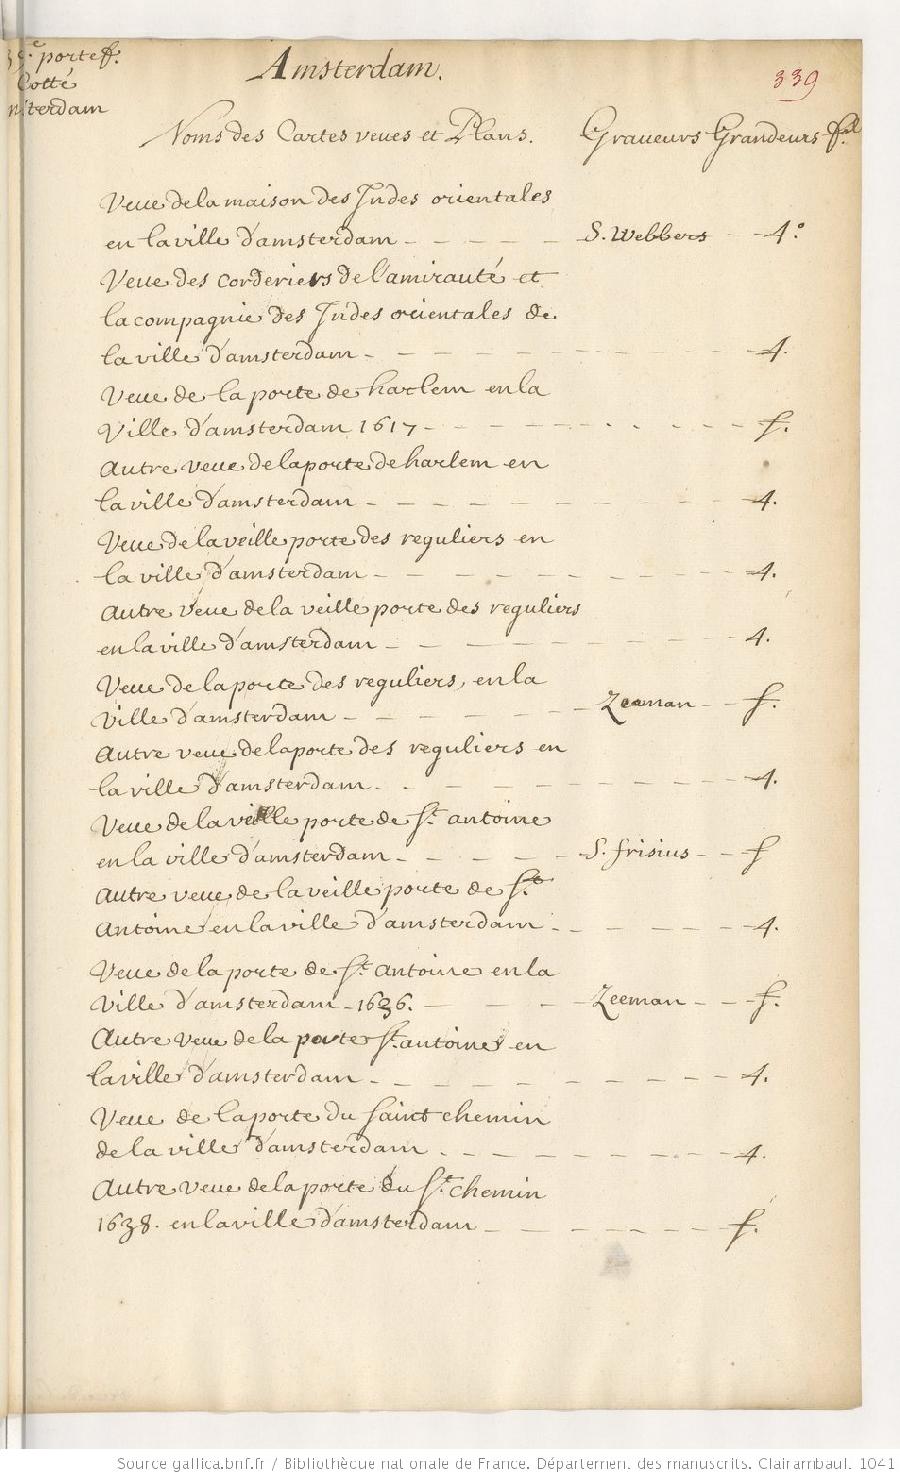 39.e portef.
Cotté
msterdam
Amsterdam.
339
Noms des Cartes veues et Plans. Graveurs Grandeurs f.al
Veue de la maison des Indes orientales
en la ville d'amsterdam - - - - - S. Webbers - - 4.o
Veue des corderiers de l'amirauté et
la compagnie des Indes orientales de.
la ville d'amsterdam - - - - - - - - - - 4.
Veue de la porte de harlem en la
Ville d'amsterdam 1617 - - - - - - - - - - f.
Autre veue de la porte de harlem en
la ville d'amsterdam - - - - - - - - - - 4.
Veue de la veille porte des reguliers en
la ville d'amsterdam - - - - - - - - - - 4.
Autre veue de la veille porte des reguliers
en la ville d'amsterdam - - - - - - - - - 4.
Veue de la porte des reguliers, en la
Ville d'amsterdam - - - - - - Zeeman - - f.
Autre veue de la porte des reguliers en
la ville d'amsterdam. - - - - - - - - - - 4.
Veue de la veille porte de St. antoine
en la ville d'amsterdam - - - - - S. frisius - - f
Autre veue de la veille porte de St.
Antoine en la ville d'amsterdam - - - - - - 4.
Veue de la porte de St. Antoine en la
Ville d'amsterdam - 1636. - - - - Zeeman - - f.
Autre veue de la porte St. antoine en
la ville d'amsterdam - - - - - - - - - - 4.
Veue de la porte du saint chemin
de la ville d'amsterdam - - - - - - - - - 4.
Autre veue de la porte du St. chemin
1638. en la ville d'amsterdam - - - - - - - f.
Source gallica.bnf.fr / Bibliothèque nationale de France. Département des manuscrits. Clairambault 1041